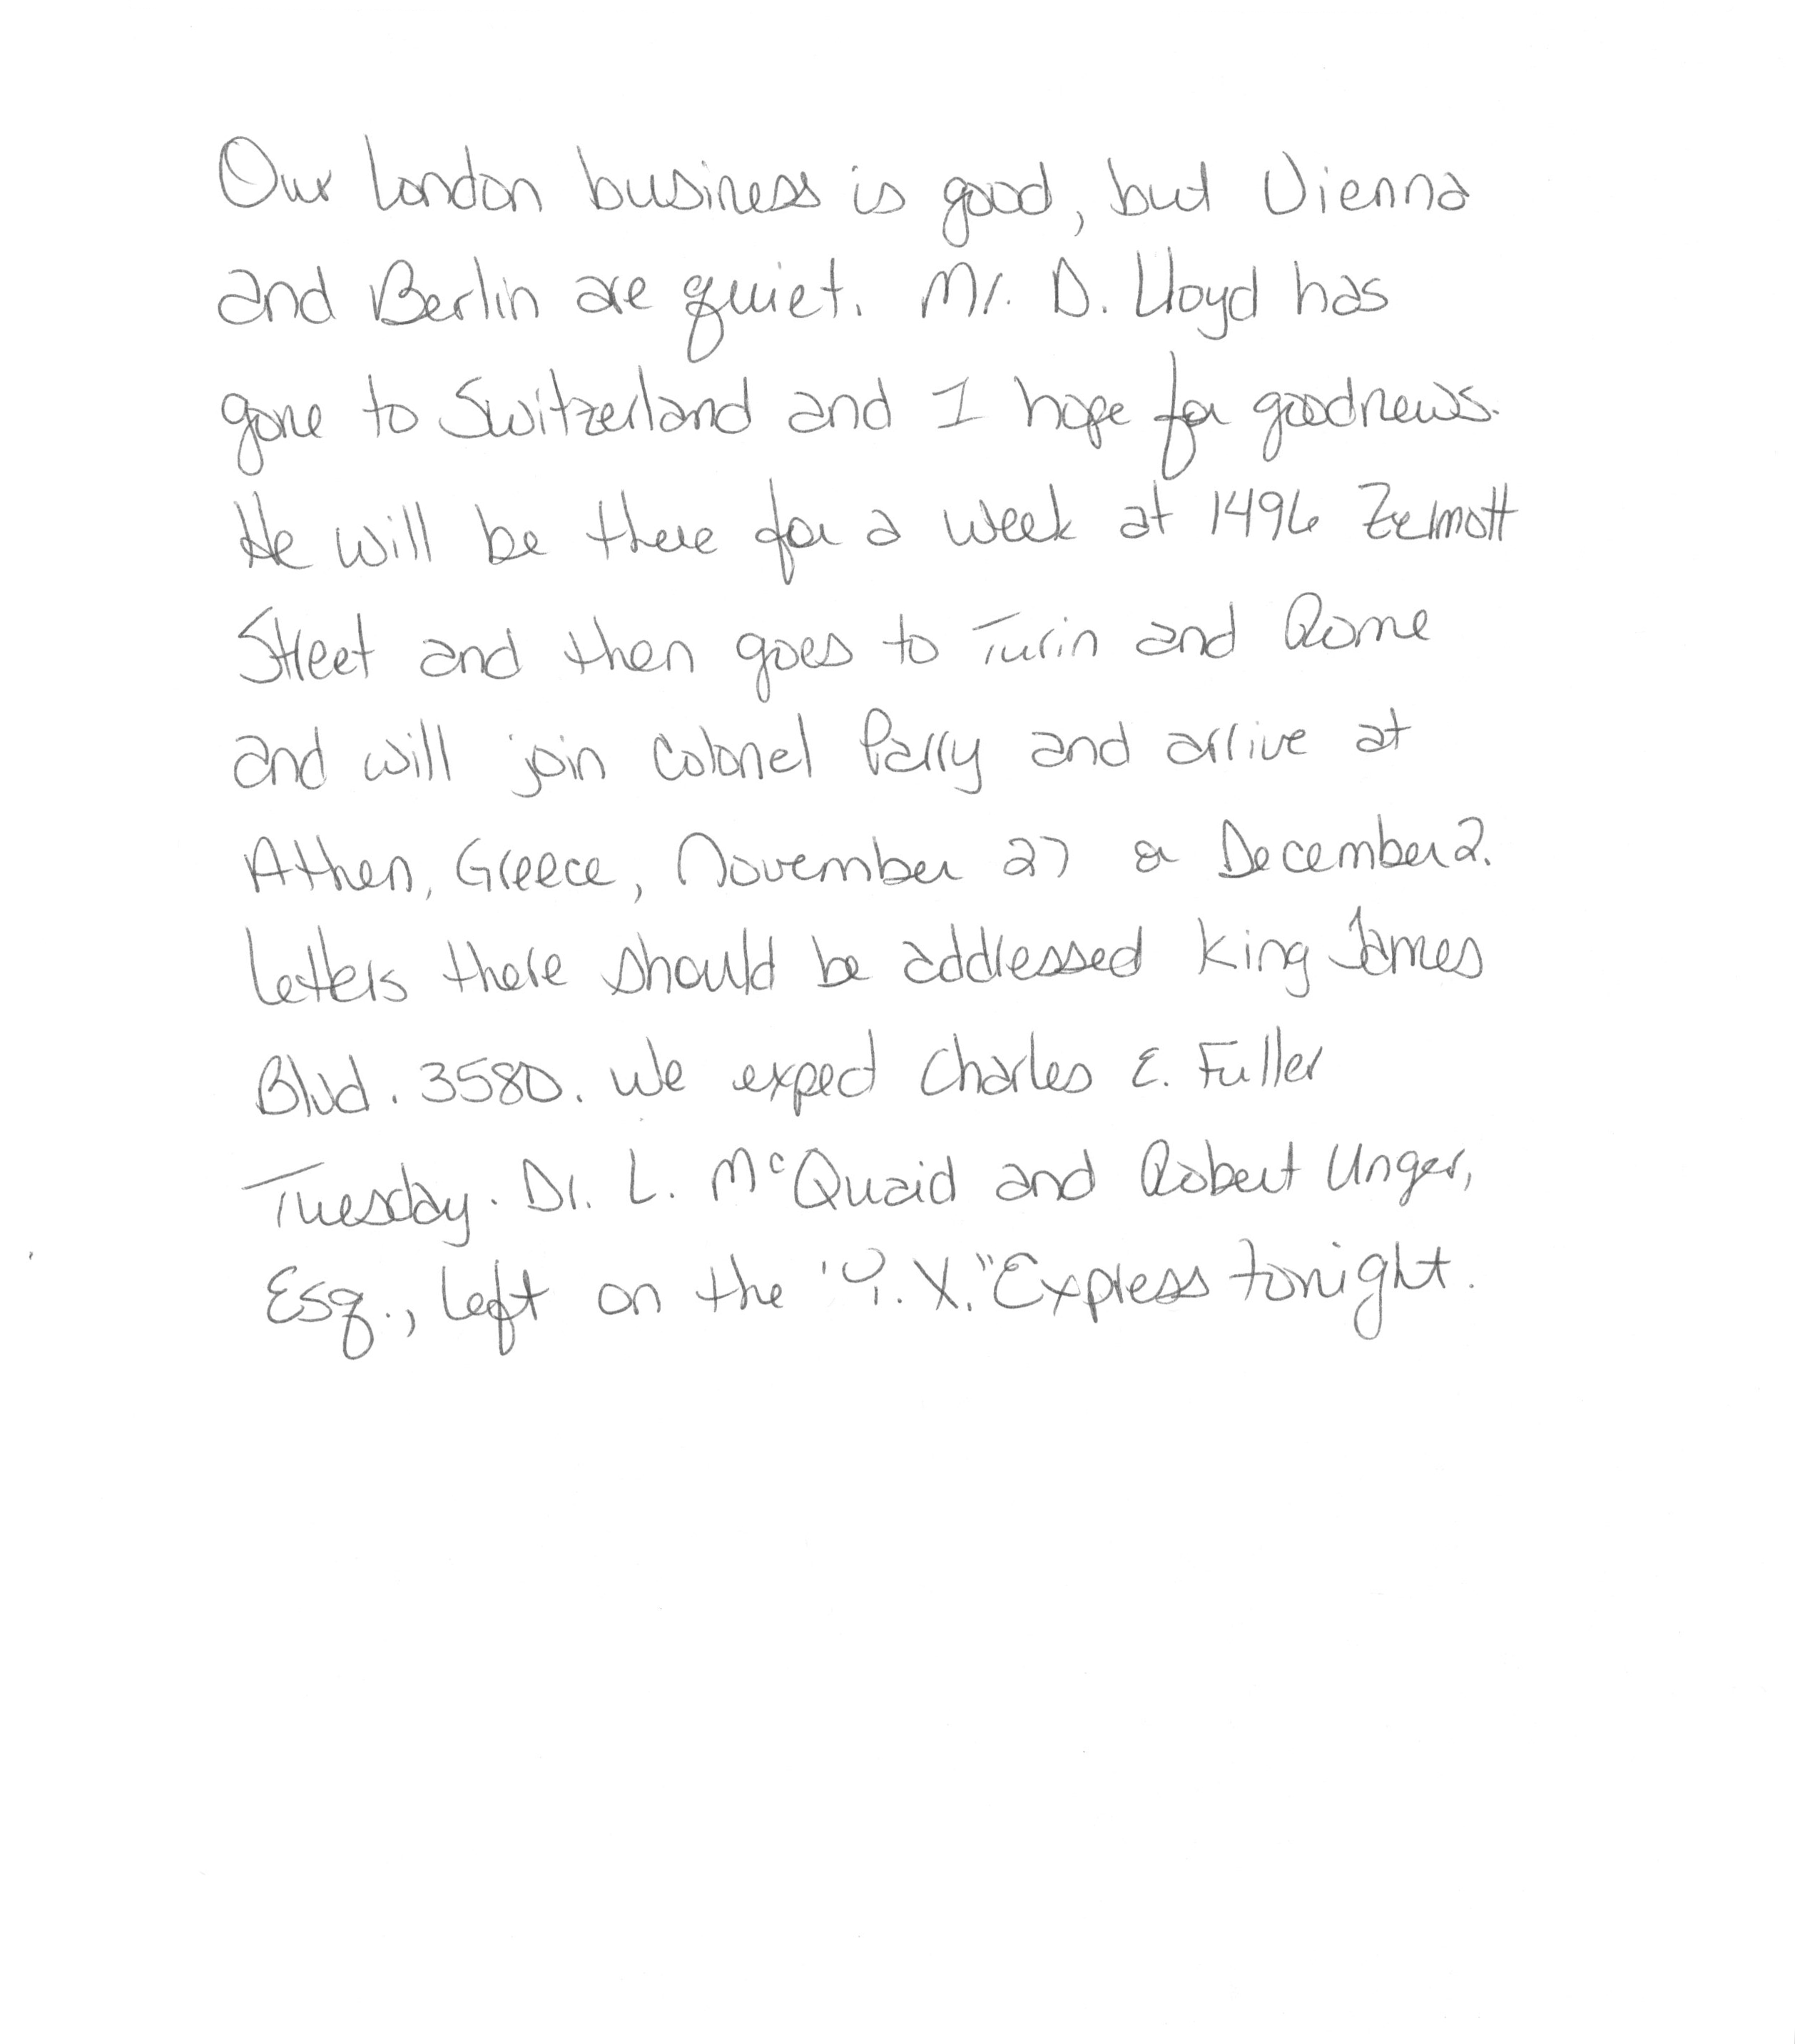 Our London business is good, but Vienna
and Berlin are quiet. Mr. D. Lloyd has
gone to Switzerland and I hope for good news.
He will be there for a week at 1496 Zermott
Street and then goes to Turin and Rome
and will join Colonel Parry and arrive at
Athen, Greece, November 27 or December 2.
Letters there should be addressed King James
Blvd. 3580. We expect Charles E. Fuller
Tuesday. Dr. L. McQuaid and Robert Unger,
Esq., left on the "Y. X." Express tonight.